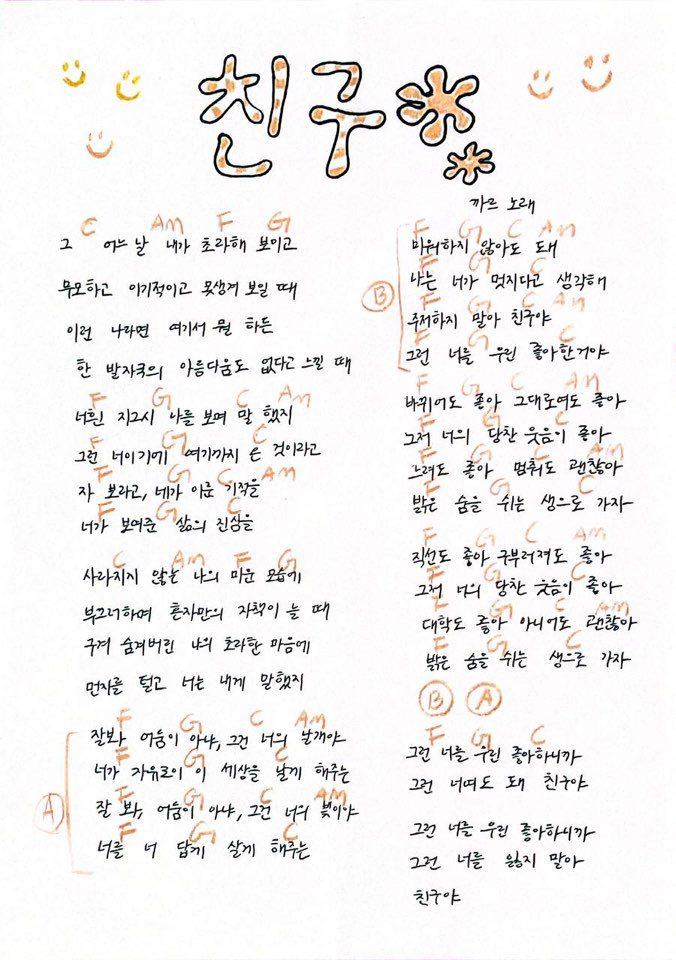 친구
까르 노래
C Am F G
그 어느 날 내가 초라해 보이고
무모하고 이기적이고 못생겨 보일 때
이런 나라면 여기서 뭘 하든
한 발자국의 아름다움도 없다고 느낄 때
F G C Am
너흰 지그시 나를 보며 말 했지
F G C
그런 너이기에 여기까지 온 것이라고
F G C Am
자 보라고, 네가 이룬 기적을
F G C
너가 보여준 삶의 진상을
C Am F G
사라지지 않는 나의 미운 모습에
부끄러하며 혼자만의 자책이 늘 때
구겨 숨겨버린 나의 초라한 마음에
먼지를 털고 너는 내게 말했지
Ⓐ
F G C Am
잘봐, 어둠이 아냐, 그건 너의 날개야
F G C
너가 자유로이 이 세상을 날게 해주는
F G C Am
잘 봐, 어둠이 아냐, 그건 너의 빛이야
F G C
너를 너 답게 살게 해주는
Ⓑ
F G C Am
미워하지 않아도 돼
F G C
나는 너가 멋지다고 생각해
F G C Am
주저하지 말아 친구야
F G C
그런 너를 우린 좋아한거야
F G C Am
바뀌어도 좋아 그대로여도 좋아
F G C
그저 너의 당찬 웃음이 좋아
F G C Am
느려도 좋아 멈춰도 괜찮아
F G C
밝은 숨을 쉬는 생으로 가자
F G C Am
직선도 좋아 구부러져도 좋아
F G C
그저 너의 당찬 웃음이 좋아
F G C Am
대학도 좋아 아니어도 괜찮아
F G C
밝은 숨을 쉬는 생으로 가자
Ⓑ Ⓐ
F G C
그런 너를 우린 좋아하니까
그런 너여도 돼 친구야
그런 너를 우린 좋아하니까
그런 너를 잃지 말아
친구야